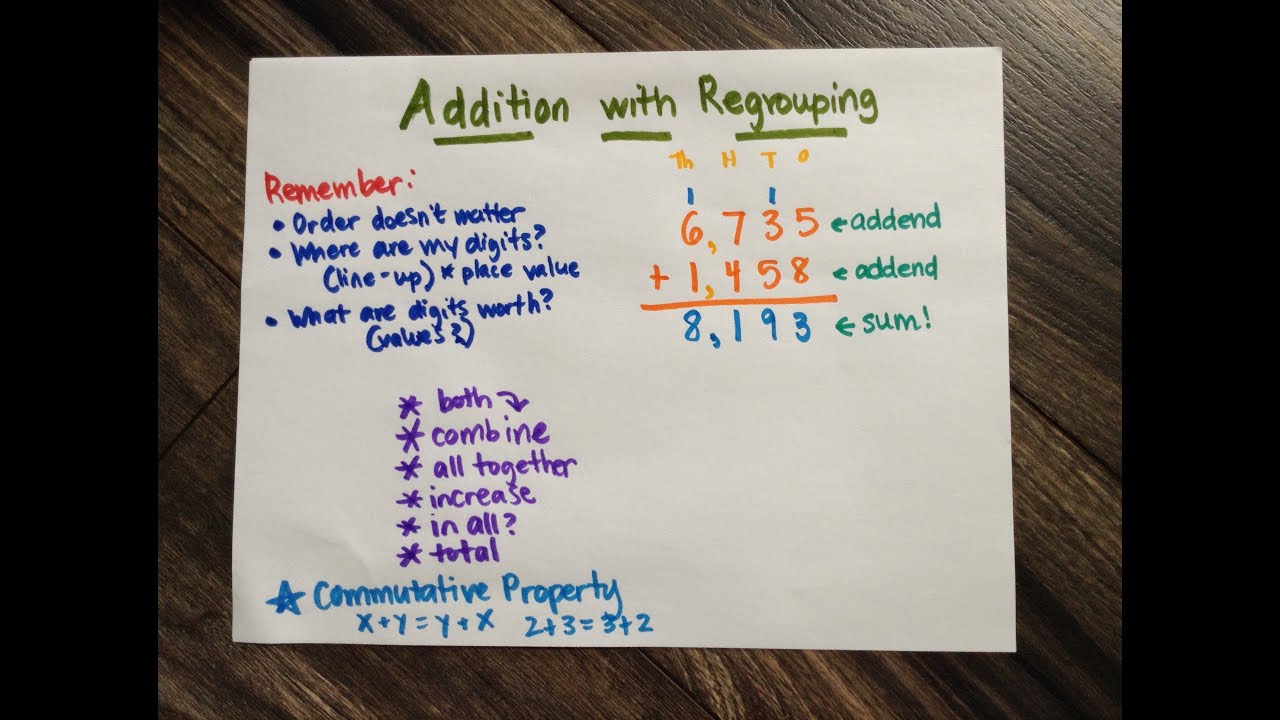 Addition with Regrouping
Remember:
• Order doesn't matter
• Where are my digits?
(line-up) * place value
• What are digits worth?
(values?)
Th H T O
1 1
6,735 ← addend
+ 1,458 ← addend
8,193 ← sum!
* both ↘
* combine
* all together
* increase
* in all?
* total
☆ Commutative Property
x+y=y+x 2+3=3+2